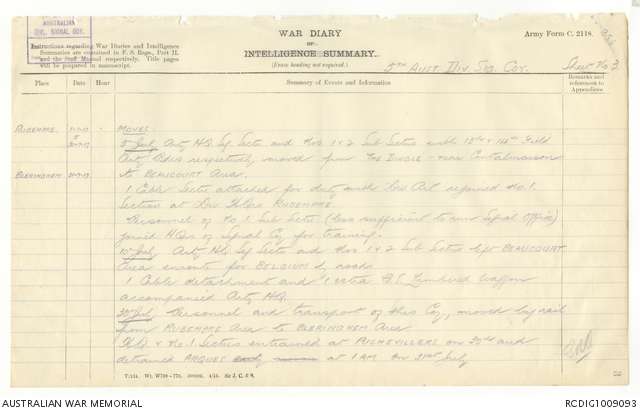 AUSTRALIAN
DIV. SIGNAL COY.
WAR DIARY
OF
INTELLIGENCE SUMMARY.
(Erase heading not required.)
Army Form C. 2118.
Instructions regarding War Diaries and Intelligence
Summaries are contained in F. S. Regs., Part II.
and the Staff Manual respectively. Title pages
will be prepared in manuscript.
5TH AUST. DIV. SIG. COY.
Sheet No 3
Place
Date
Hour
Summary of Events and Information
Remarks and
references to
Appendices
RUBEMPRE
MOVES
5 July Arty H.Q. Sig Sectn and Nos 1 & 2 Sub Sectns with 13th & 14th Field
Arty Bdes respectively moved from THE DINGLE - near Contalmaison
to BEAUCOURT Area.
BLERINGHEM 31-7-17
1 Cable Sectn attached for duty with Div Art rejoined No. 1
Section at Div HQrs RUBEMPRE
Personnel of No 1 Sub Sectn. (less sufficient to man Signal Office)
joined HQrs of Signal Coy for training.
Arty HQ Sig Sectn and Nos 1 & 2 Sub Sectns left BEAUCOURT
Area enroute for BELGIUM by roads.
1 Cable detachment and 1 extra Limbered Waggon
accompanied Arty HQ.
30 July Personnel and transport of this Coy, moved by rail
from RUBEMPRE Area to BLERINGHEM Area
HQ & No. 1 Sectns entrained at PUCHEVILLERS on 30th and
detrained ARQUES at 1 AM on 31st July
AUSTRALIAN WAR MEMORIAL
RCDIG1009093